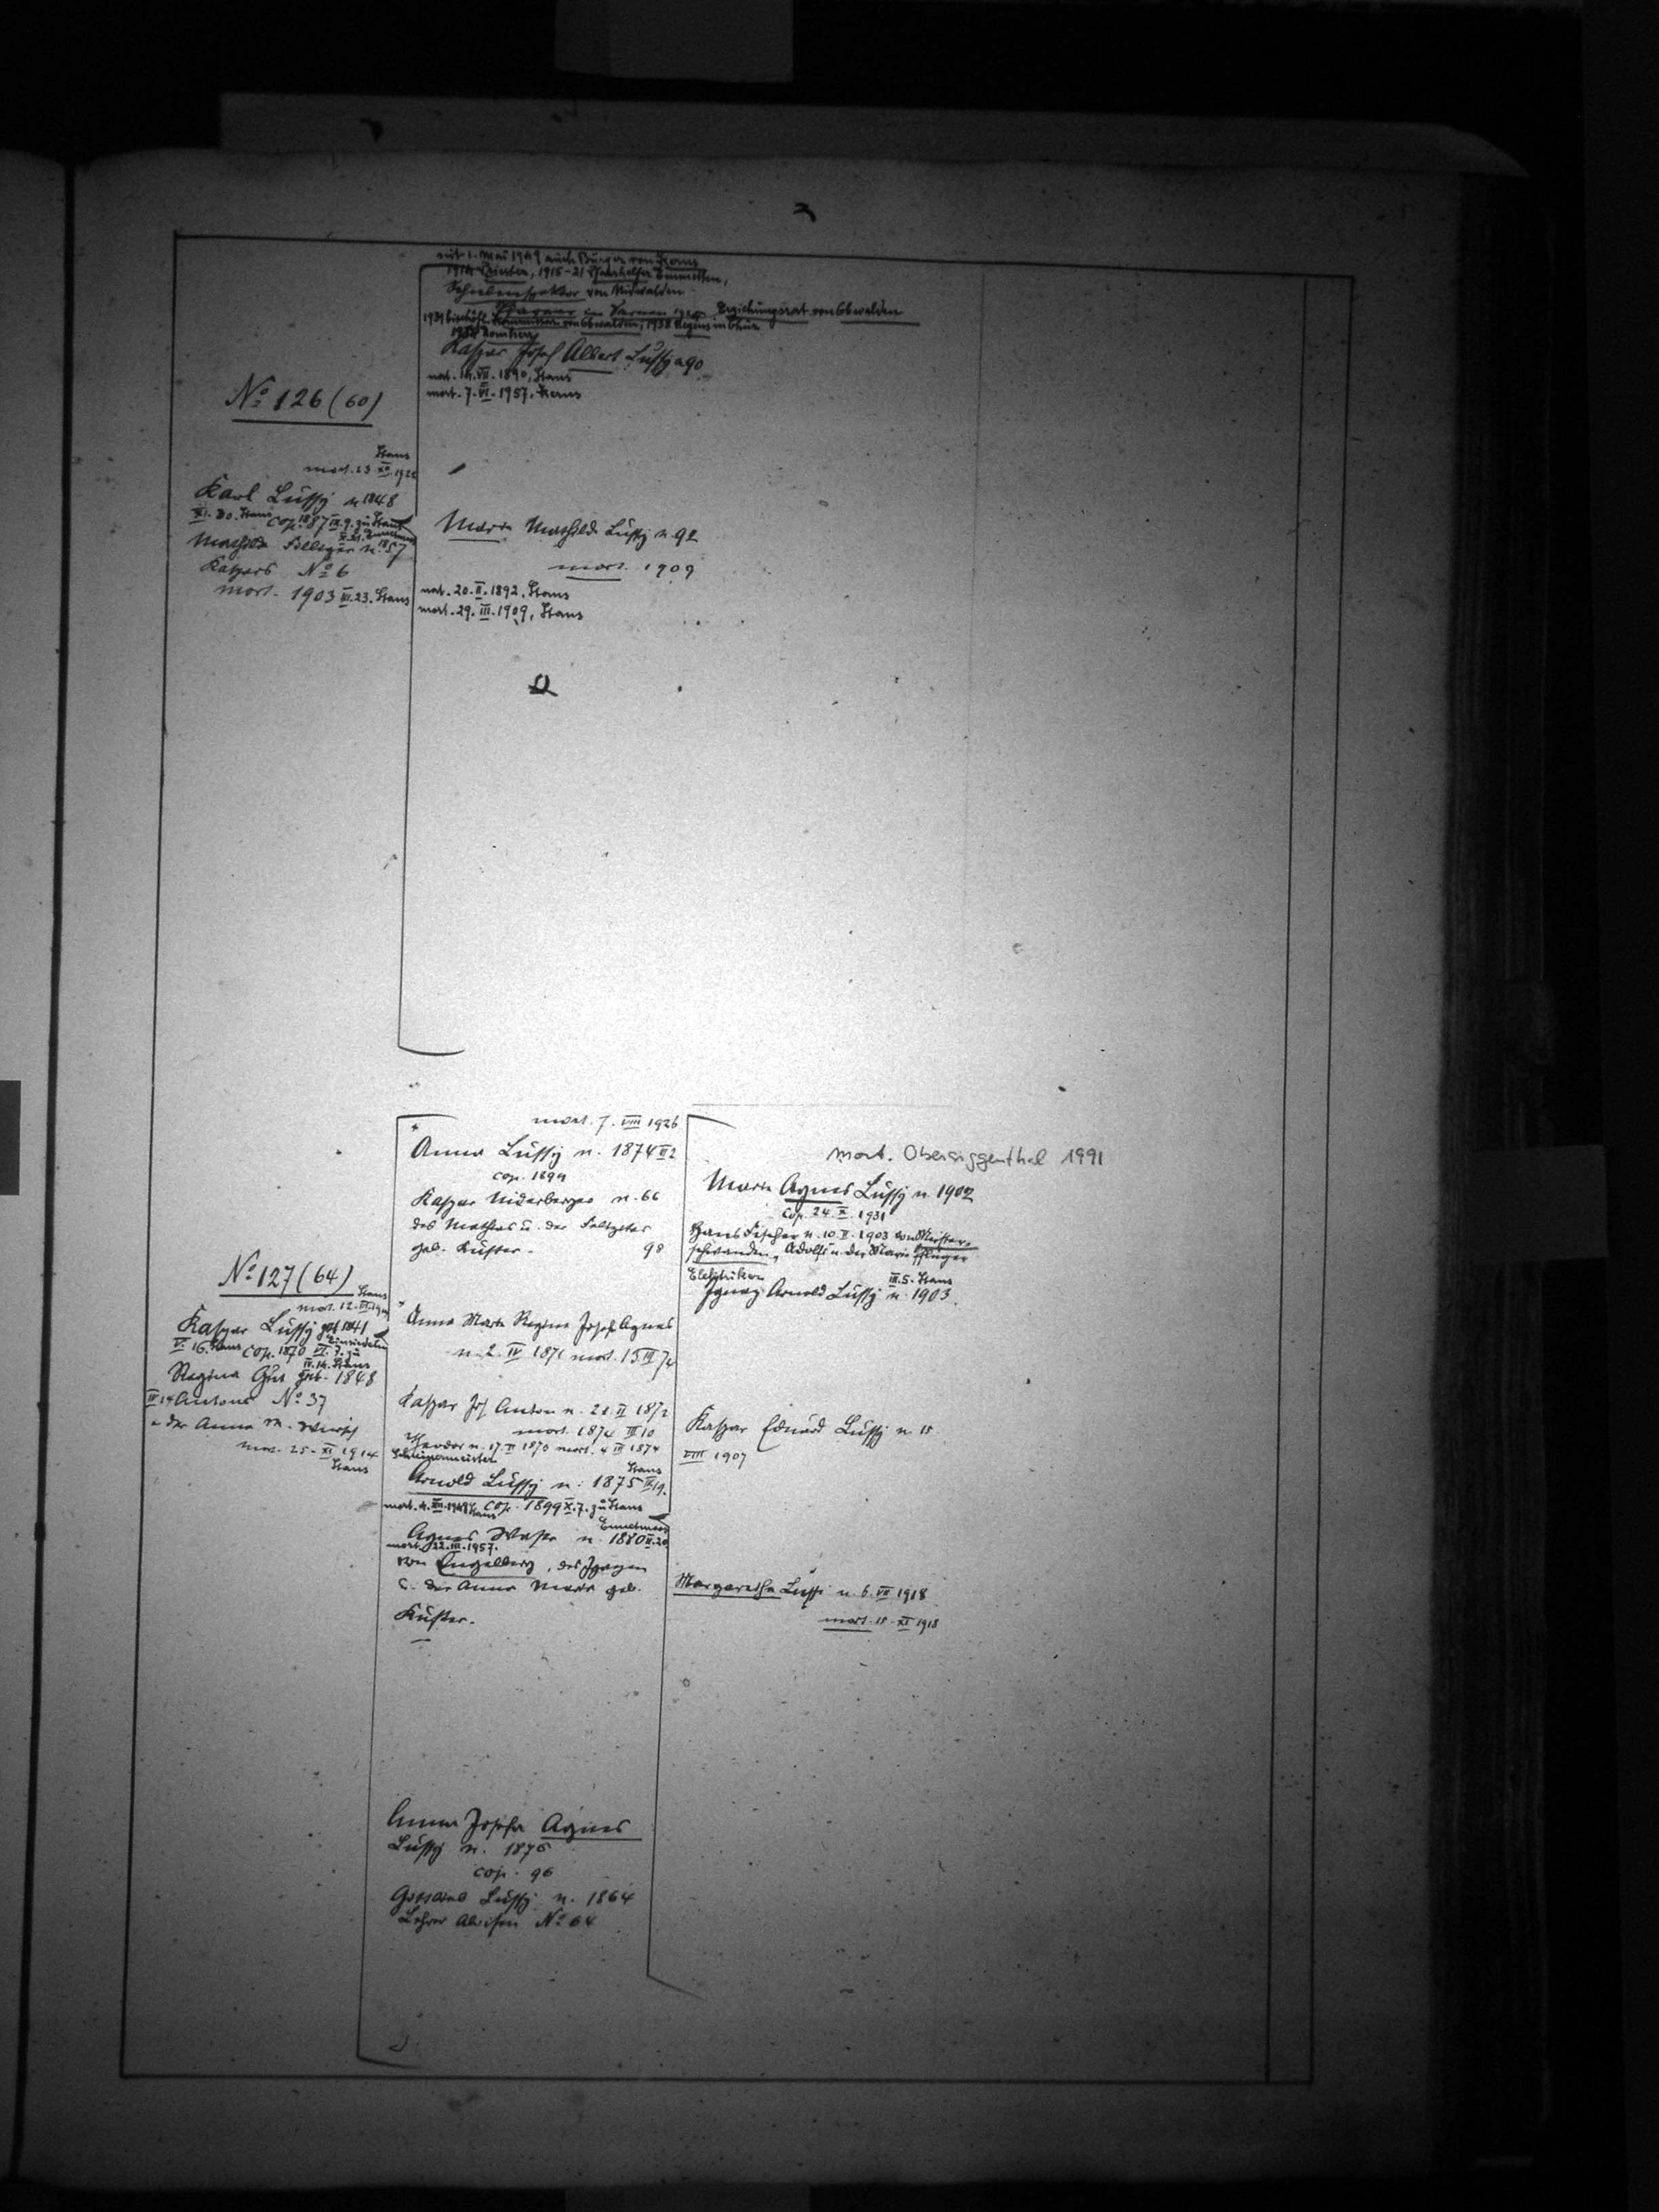 seit 1. Mai 1949 auch Bürger von Kerns
1914 Priester, 1915-21 Pfarrhelfer Emmetten,
Schulinspektor von Nidwalden
Pfarrer in Sarnen Erziehungsrat von Obwalden
1931 bischöfl. Kommissar von Obwalden, 1938 Regens in Chur
Kaspar Josef Albert Lussy n 90
nat. VII. 1890, Stans
mort. 7. VI. 1957, Kerns
No 126 (60)
Stans
mort. 23 XII. 192
Karl Lussy n 1848
XI. 30. Stans cop. 1887 IX. 9. zu Stans
Mathilde n. 1857
Kaspars No 6
mort. 1903 III. 23. Stans
Maria Mathilde Lussy n. 92
mort. 1909
nat. 20. II. 1892, Stans
mort. 29. III. 1909, Stans
mort. 7. VIII 1926
Anna Lussy n. 1874 II 2
cop. 189
Kaspar Niderberger n. 66
des Mathias u. der
geb. Küster. 98
mort. Obersiggenthal 1991
Maria Agnes Lussy n. 1902
cop. 24. X. 1931
Hans Fischer n. 10. II. 1903 von Meister-
schwanden, Adolfs u. der Marie Pflüger
Elektriker III. 5. Stans
Ignaz Arnold Lussy n. 1903.
No 127 (64)
Stans
mort. 12.
Kaspar Lussy get 1841
V. 16. Stans cop. 1870 VI. 7. zu Einsiedeln
II. 14. Stans
Regina Gut geb. 1848
Antons No 37
u der Anna M. Wyrsch
mort. 25. XI 1914
Stans
Anna Maria Regina Josefa Agnes
n. 2. IV 1871 mort. 15 III 74
Kaspar Jos Anton n. 21. II 1872
mort. 1874 III 10
Theodor n. 17. II 1873 mort. 4 III 1874
Schreinermeister Stans
Arnold Lussy n. 1875 III 19.
mort. 4. Stans cop. 1899 X. 7. zu Stans
Agnes Waser n. 1880 II. 20
mort. 22. III. 1957.
von Engelberg, des Ignazen
u. der Anna Maria geb.
Küster.
Kaspar Eduard Lussy n 15
VIII 1907
Margaretha Lussi n. 6. VII 1918
mort. 15. XI 1918
Anna Josefa Agnes
Lussy n. 1876
cop. 96
Lussy n. 1864
Lehrer Aloisen No 64